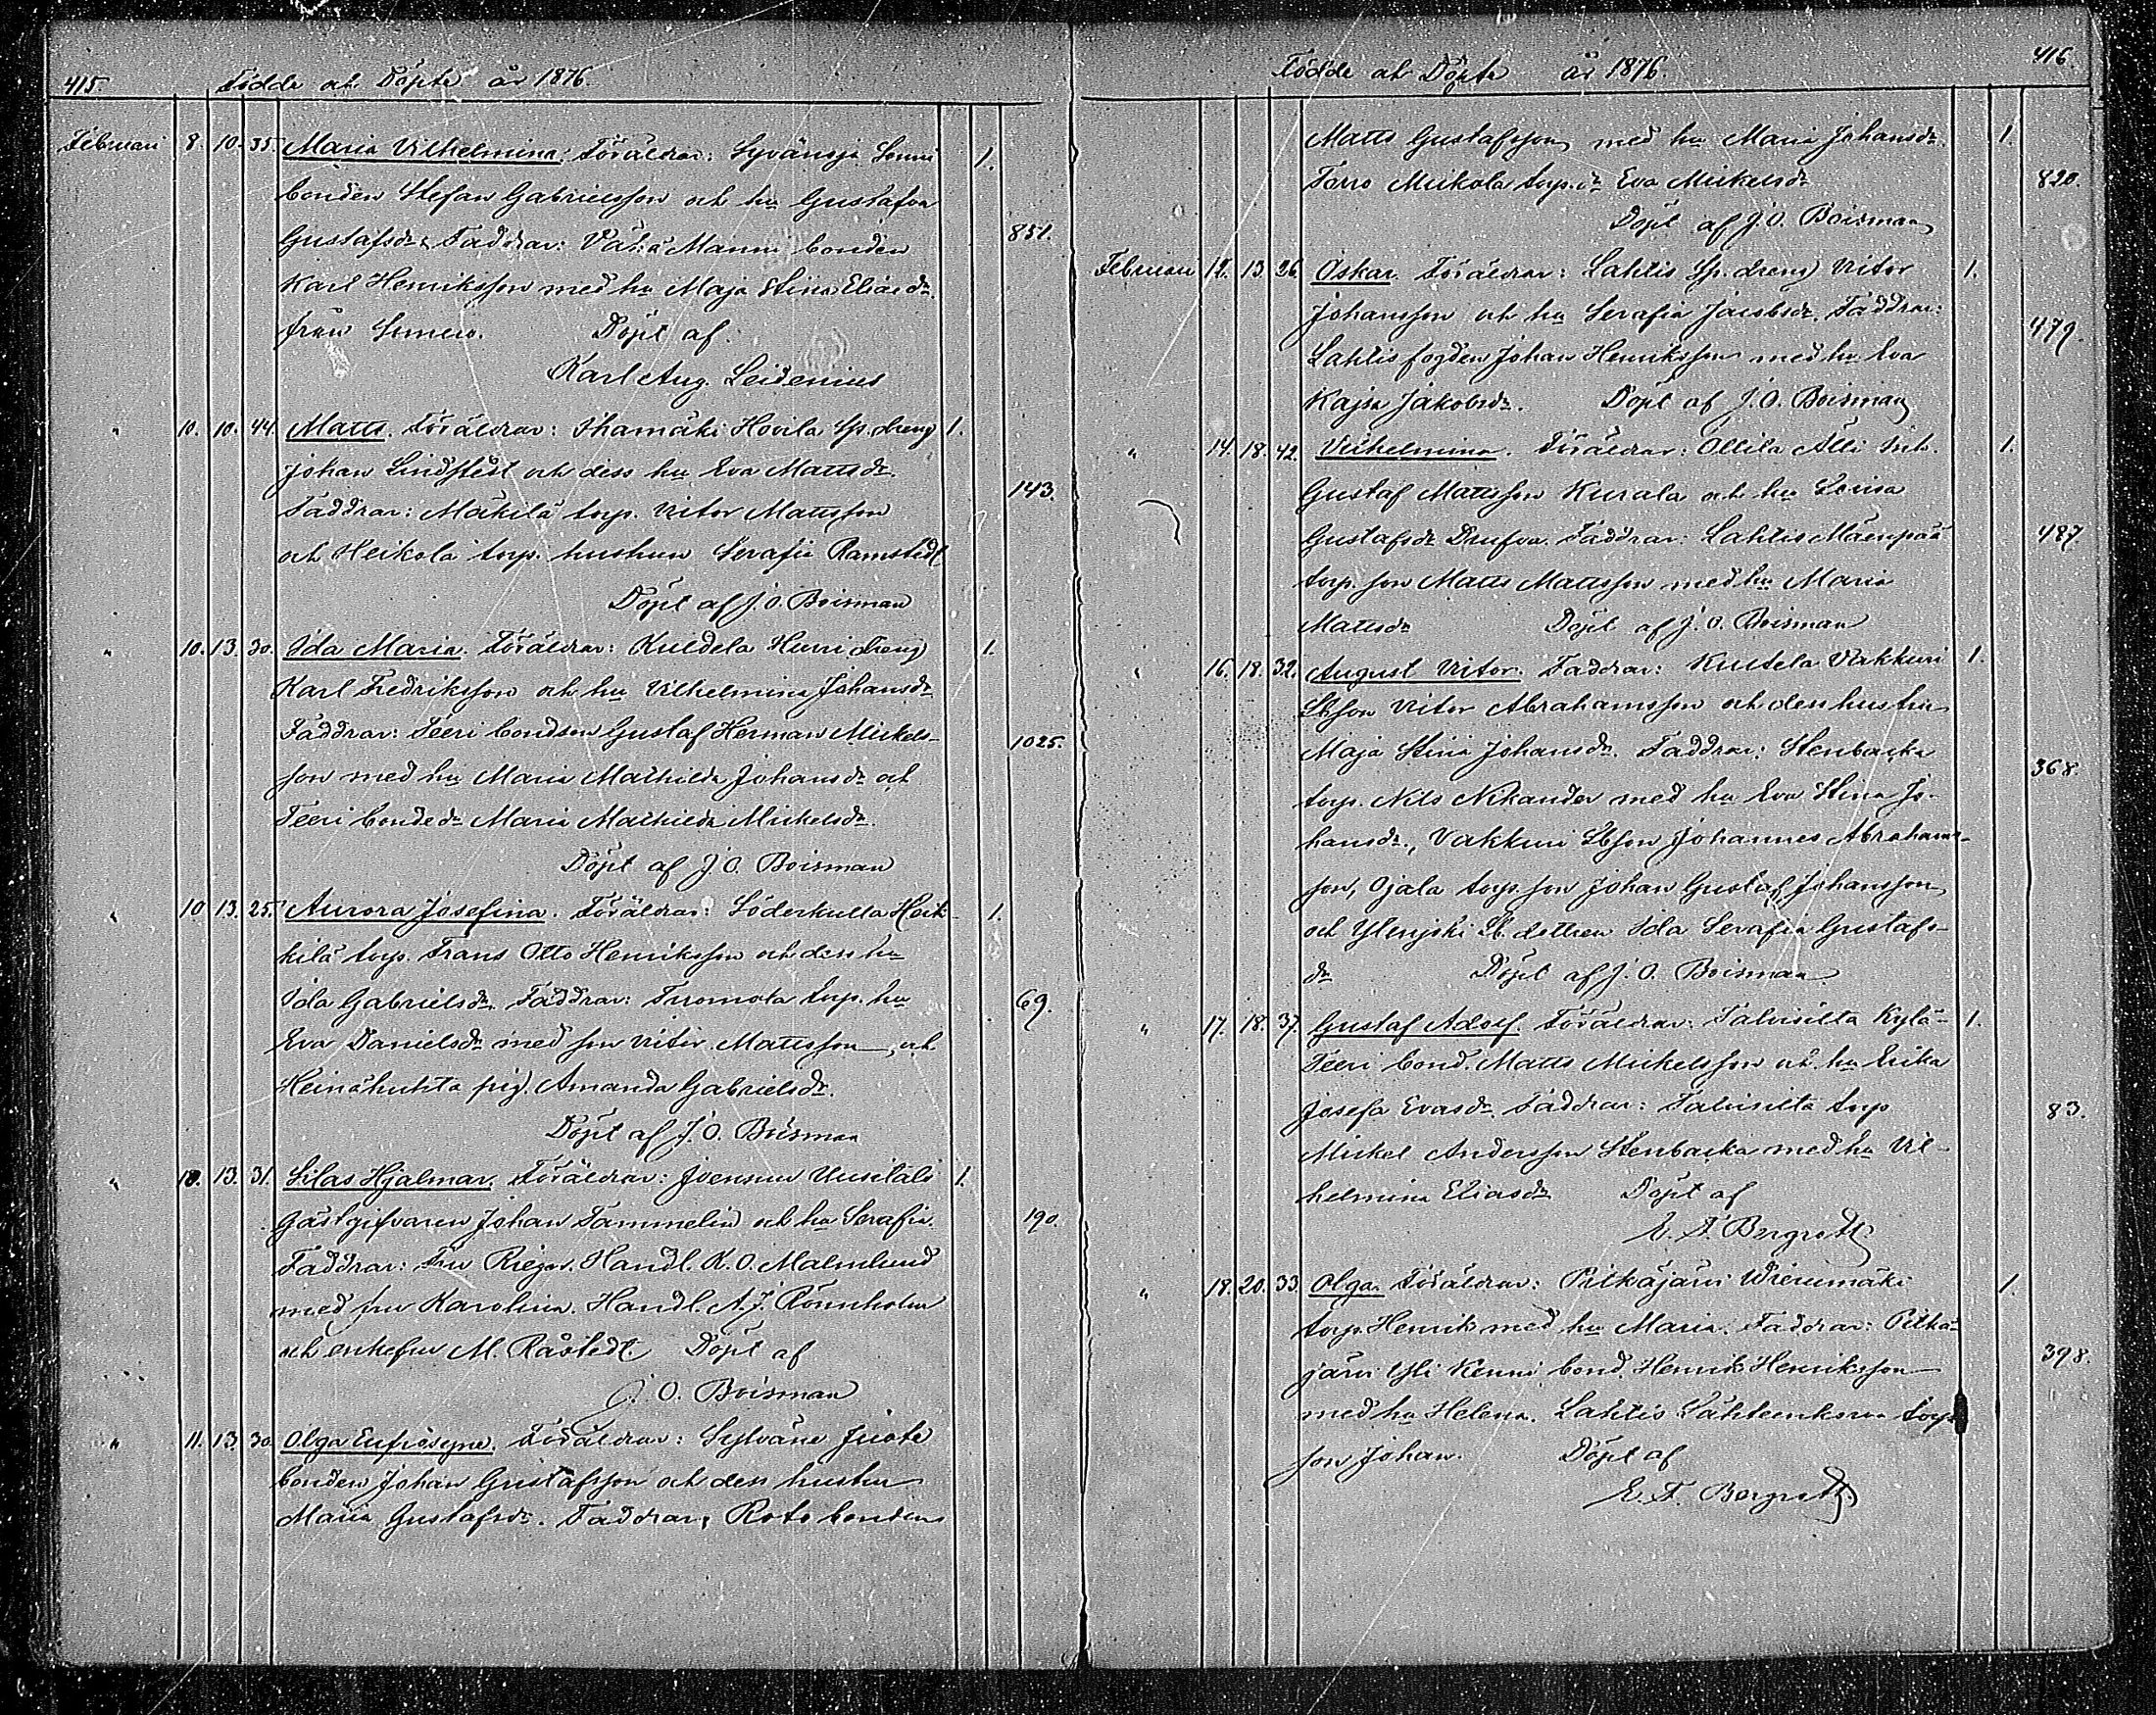 415. Födde och Döpte år 1876.
Februari 8. 10. 35. Maria Vilhelmina. Föräldrar: Syvänoja Sonni 1.
bonden Stefan Gabrielsson och hu Gustafva
Gustafsdr. Faddrar: Manni bonden 851.
Karl Henriksson med hu Maja Stina Eliaedr.
från Somero. Döpt af
Karl Aug. Leidenius
" 10. 10. 44. Matts. Föräldrar: Ihamäki Hovila Sp. dreng 1.
Johan Lindstedt och dess hu Eva Mattsdr.
Faddrar: Mäkilä torp. Vitor Mattsson 143.
och Heikola torp. hushun Serafia Ramstedt
Döpt af J. O. Boisman
" 10. 13. 30. Ida Maria. Föräldrar: Kuldela Hurri dreng 1.
Karl Fredriksson och hu Vilhelmina Johansdr
Faddrar: Teeri bondson Gustaf Herman Mickels- 1025.
son med hu Maria Mathilda Johansdr och
Teeri bondedr Maria Mathilda Mickelsdr.
Döpt af J. O. Boisman
" 10 13. 25. Aurora Josefina. Föräldrar: Söderkulla Heik- 1.
kilä torp. Frans Otto Henriksson och dess hu
Ida Gabrielsdr. Faddrar: Tuomola torp. hu 69.
Eva Danielsdr med son Vitor Mattsson, och
Heinähuhta pig. Amanda Gabrielsdr.
Döpt af J. O. Boisman
" 10. 13. 31. Silas Hjalmar. Föräldrar: Joensuu Uusitalo 1.
Gästgifvaren Johan Tammelin och hu Serafia. 190.
Faddrar: Fru Rieger. Handl. K. O. Malmlund
med fru Karolina. Handl. A. J. Rönnholm
och enkefru M. Råstedt. Döpt af
J. O. Boisman
" 11. 13. 30. Olga Eufrosyne. Föräldrar: Sylvänä Juota
bonden Johan Gustafsson och dess hustru
Maria Gustafsdr. Faddrar: Roto bonden
Födde och Döpte år 1876. 416.
Matts Gustafsson med hu Maria Johansdr. 1.
Torro Mickola torp. dr Eva Mickelsdr 820.
Döpt af J. O. Boisman
Februari 12. 13. 26. Oskar. Föräldrar: Lahtis Sp. dreng Vitor 1.
Johansson och hu Serafia Jacobsdr. Faddrar: 479.
Lahtis fogden Johan Henriksson med hu Eva
Kajsa Jakobsdr. Döpt af J. O. Boisman
" 14. 18. 42. Vilhelmina. Föräldrar: Ollila Alli Inh. 1.
Gustaf Mattsson Kurala och hu Lovisa
Gustafsdr Drufva. Faddrar: Lahtis Mäenpää 487.
torp. son Matts Mattsson med hu Maria
Mattsdr Döpt af J. O. Boisman
" 16. 18. 32. August Vitor. Faddrar: Kustela Vakkuri 1.
Sbson Vitor Abrahamsson och dess hustru
Maja Stina Johansdr. Faddrar: Stenbacka 368.
torp. Nils Nikander med hu Eva Stina Jo-
hansdr., Vakkuri Sbson Johannes Abrahams-
son, Ojala torp. son Johan Gustaf Johansson
och Ylenjoki Sb. dottren Ida Serafia Gustafs-
dr Döpt af J. O. Boisman
" 17. 18. 37. Gustaf Adolf. Föräldrar: Talvisilta Kylä- 1.
Teeri bond. Matts Mickelsson och hu Erika
Josefa Evasdr. Faddrar: Talvisilta torp 83.
Mickel Andersson Stenbacka med hu Vil-
helmina Eliasdr Döpt af
E. F. Bergroth
" 18. 20. 33. Olga. Föräldrar: Pitkäjärvi Wierumäki 1.
torp. Henrik med hu Maria. Faddrar: Pitkä-
järvi Yli Kenni bond. Henrik Henriksson 398.
med hu Helena. Lahtis Lähteenkorva torp.
son Johan. Döpt af
E. F. Bergroth